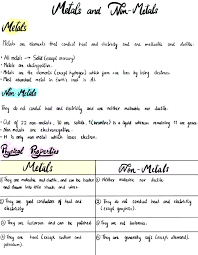 Metals and Non-Metals
Metals
Metals are elements that conduct heat and electricity and are malleable and ductile.
• All metals → Solid (except mercury)
• Metals are electropositive.
• Metals are the elements (except hydrogen) which form +ve ions by losing electrons.
• Most abundant metal in Earth's crust is Al.
Non Metals
They do not conduct heat and electricity and are neither malleable nor ductile.
• Out of 22 non-metals, 10 are solids, 1 (bromine) is a liquid whereas remaining 11 are gases.
• Non-metals are electronegative.
• H is only non metal which loses electron.
Physical Properties
Metals
Non-Metals
① They are malleable and ductile, and can be beaten and drawn into thin sheets and wires.
① Neither malleable nor ductile.
② They are good conductors of heat and electricity
② They do not conduct heat and electricity (except graphite).
③ They are lustrous and can be polished
③ They are not lustrous.
④ They are hard (except sodium and potassium).
④ They are generally soft (except diamond).